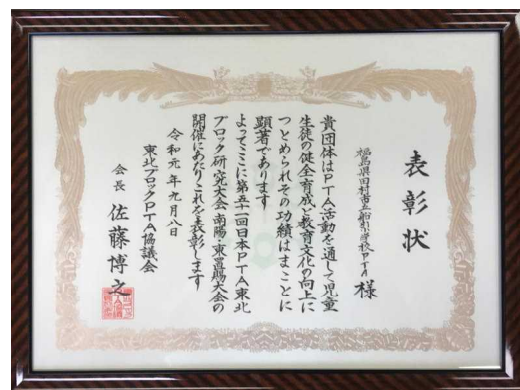 表彰状
福島県田村市立船引小学校PTA 様
貴団体はPTA活動を通して児童
生徒の健全育成と教育文化の向上に
つとめられその功績はまことに
顕著であります
よってここに第五十一回日本PTA東北
ブロック研究大会南陽・東置賜大会の
開催にあたりこれを表彰します
令和元年九月八日
東北ブロックPTA協議会
会長 佐藤博之